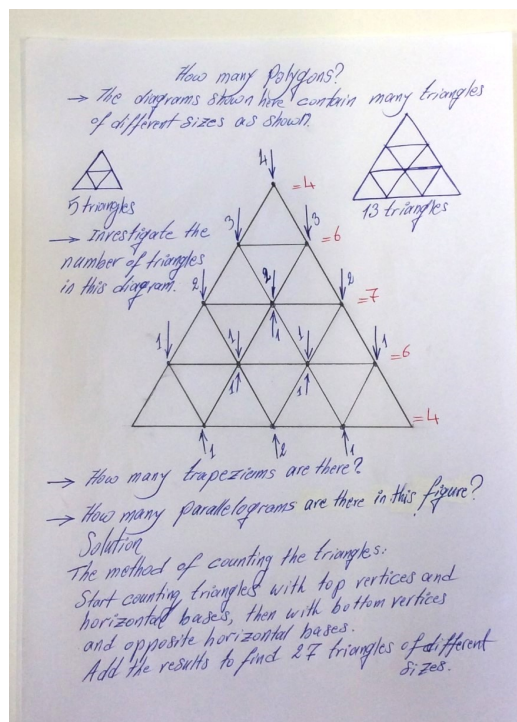 How many polygons?
→ The diagrams shown here contain many triangles
of different sizes as shown.
4
= 4
5 triangles
13 triangles
→ Investigate the
number of triangles
in this diagram.
3 3
= 6
2 2 2
= 7
1
1 1 1 1
= 6
1 1
= 4
1 2 1
→ How many trapeziems are there?
→ How many parallelograms are there in this figure?
Solution
The method of counting the triangles:
Start counting triangles with top vertices and
horizontal bases, then with bottom vertices
and opposite horizontal bases.
Add the results to find 27 triangles of different
sizes.